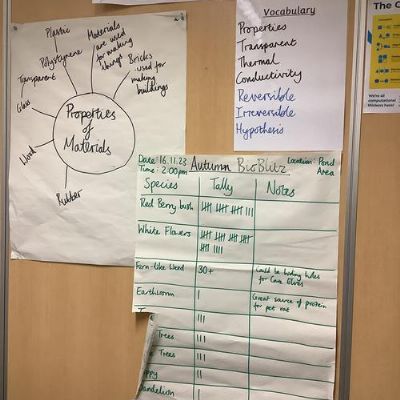 Plastic
Polystyrene
Transparent
Glass
Wood
Rubber
Materials
are used
for making
things
Bricks
used for
making
buildings
Properties
of
Materials
Vocabulary
Properties
Transparent
Thermal
Conductivity
Reversible
Irreversible
Hypothesis
The C
Date: 16.11.23 Autumn BioBlitz Location: Pond
Time: 2:00pm Area
Species Tally Notes
Red Berry bush
White Flowers
Fern-like Weed 30+ Could be hiding holes
for Cave Elves
Earthworm Great source of protein
for pet rat
Trees
Trees
Dandelion